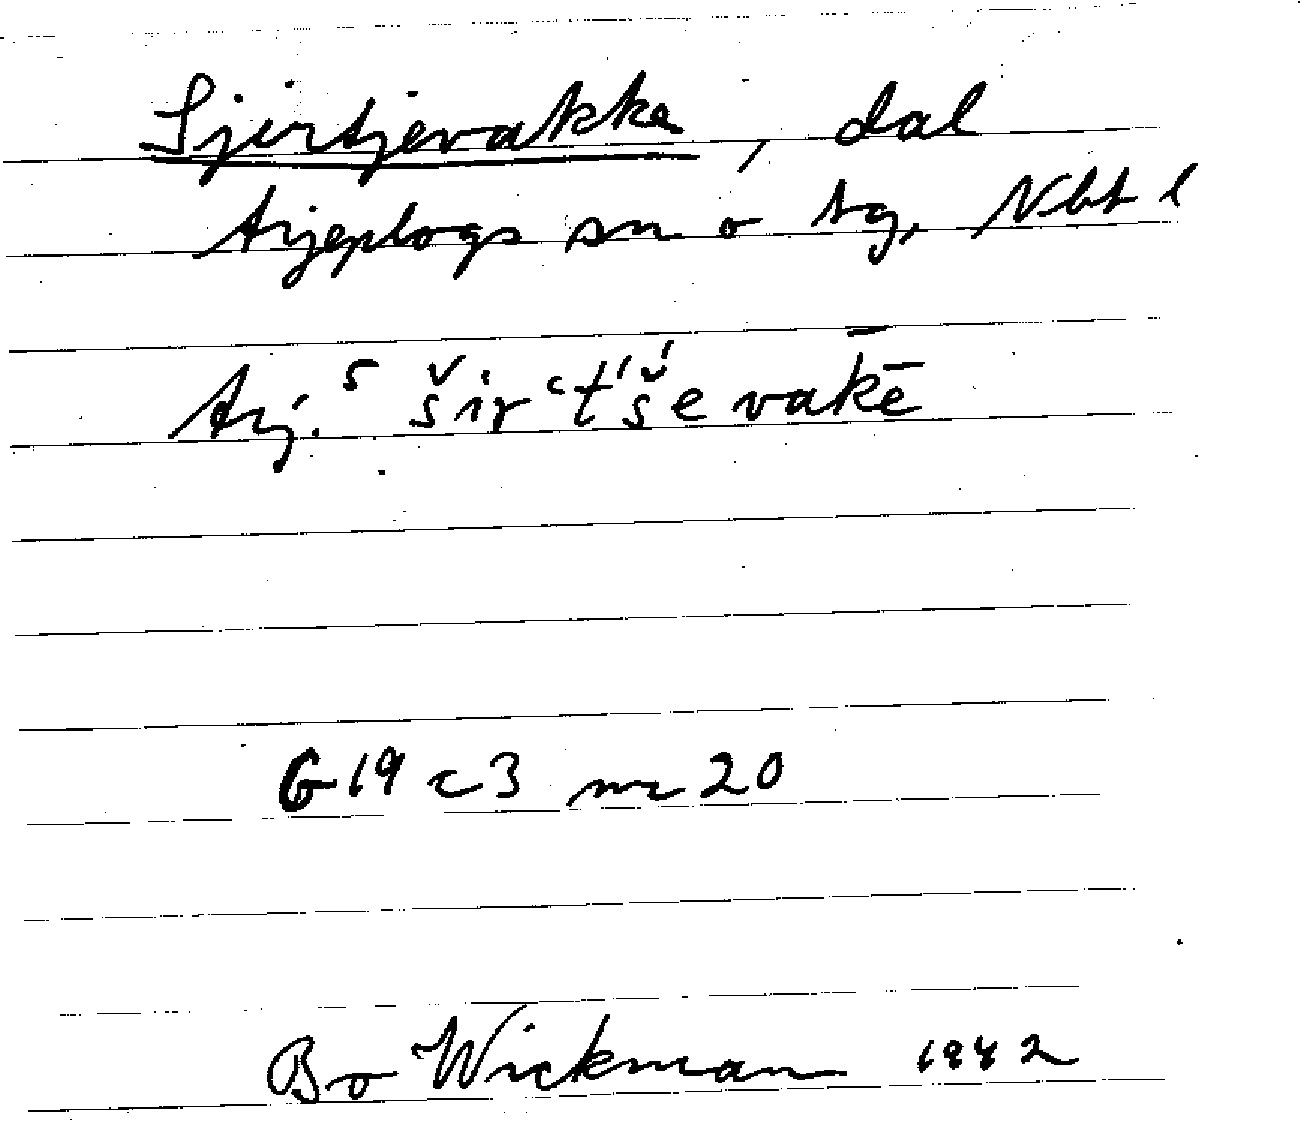 Sjirtjevakke, dal
Arjeplogs sn o tg, Nbt l
Arj. š̌irʿt́š́evak̄ē
G19 c3 nr 20
Bo Wickman 1942